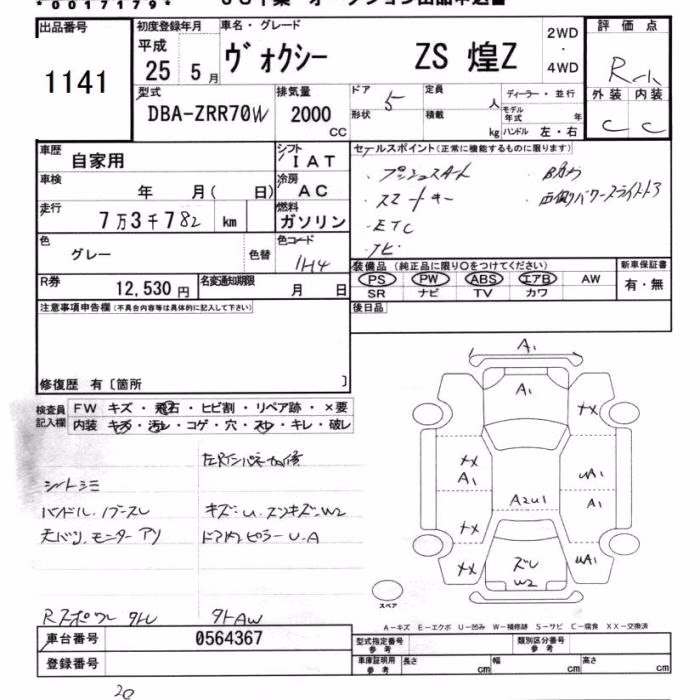 *0017179*
出品番号 初度登録年月 車名・グレード 2WD ・ 4WD 評価点
1141 平成 25 5月 ヴォクシー ZS 煌Z R
外装 内装
C C
型式 DBA-ZRR70W 排気量 2000 CC ドア 5 形状 定員 人 積載 kg ディーラー・並行 モデル年式 年 ハンドル 左・右
車歴 自家用 シフト IAT セールスポイント(正常に機能するものに限ります)
車検 年 月( 日) 冷房 AC ・プッシュスタート
・スマートキー ・両側パワースライドドア
走行 7万3千782 km 燃料 ガソリン ・ETC
・ナビ
色 グレー 色替 色コード 1H4
装備品(純正品に限り〇をつけてください) 新車保証書
PS PW ABS エアB AW 有・無
SR ナビ TV カワ
R券 12,530円 名変通知期限 月 日
注意事項申告欄(不具合内容等は具体的に記入して下さい) 後日品
修復歴 有〔箇所 〕
検査員記入欄 FW キズ・飛石・ヒビ割・リペア跡・×要
内装 キズ・汚レ・コゲ・穴・スレ・キレ・破レ
シートシミ
ハンドル、ノブスレ キズ・U・スリキズ・W2
天バリ、モニターアリ ドア内ピラーU・A
Rスポイラー 外AW
A1
A1
XX
XX
A1
UA1
A2U1
A1
XX
XX
ズレ
W2
UA1
スペア
A-キズ E-エクボ U-凹み W-補修跡 S-サビ C-腐食 XX-交換済
車台番号 0564367 型式指定番号 参考 類別区分番号 参考
登録番号 車庫証明用 参考 長さ cm 幅 cm 高さ cm
20